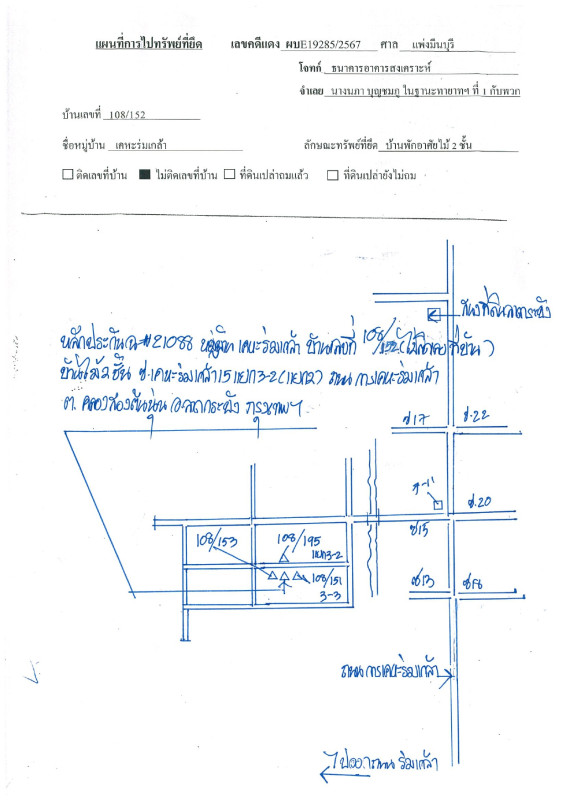 แผนที่การไปทรัพย์ที่ยึด เลขคดีแดง ผบE19285/2567 ศาล แพ่งมีนบุรี
โจทก์ ธนาคารอาคารสงเคราะห์
จำเลย นางนภา บุญชมภู ในฐานะทายาทฯ ที่ 1 กับพวก
บ้านเลขที่ 108/152
ชื่อหมู่บ้าน เคหะร่มเกล้า ลักษณะทรัพย์ที่ยึด บ้านพักอาศัยไม้ 2 ชั้น
ติดเลขที่บ้าน ไม่ติดเลขที่บ้าน ที่ดินเปล่าถมแล้ว ที่ดินเปล่ายังไม่ถม
หลักประกัน #21088 เคหะร่มเกล้า บ้านเลขที่ 108/152
บ้านไม้ 2 ชั้น ซ.เคหะร่มเกล้า 15 แยก 3-2 (แยก2) ถนน การเคหะร่มเกล้า
ต. คลองสองต้นนุ่น อ.ลาดกระบัง กรุงเทพฯ
ซ17 ซ.22
ซ.20
ซ15
108/153 108/195
แยก3-2
108/151
3-3
ซ13 ซ18
ถนน การเคหะร่มเกล้า
ไปออกถนน ร่มเกล้า